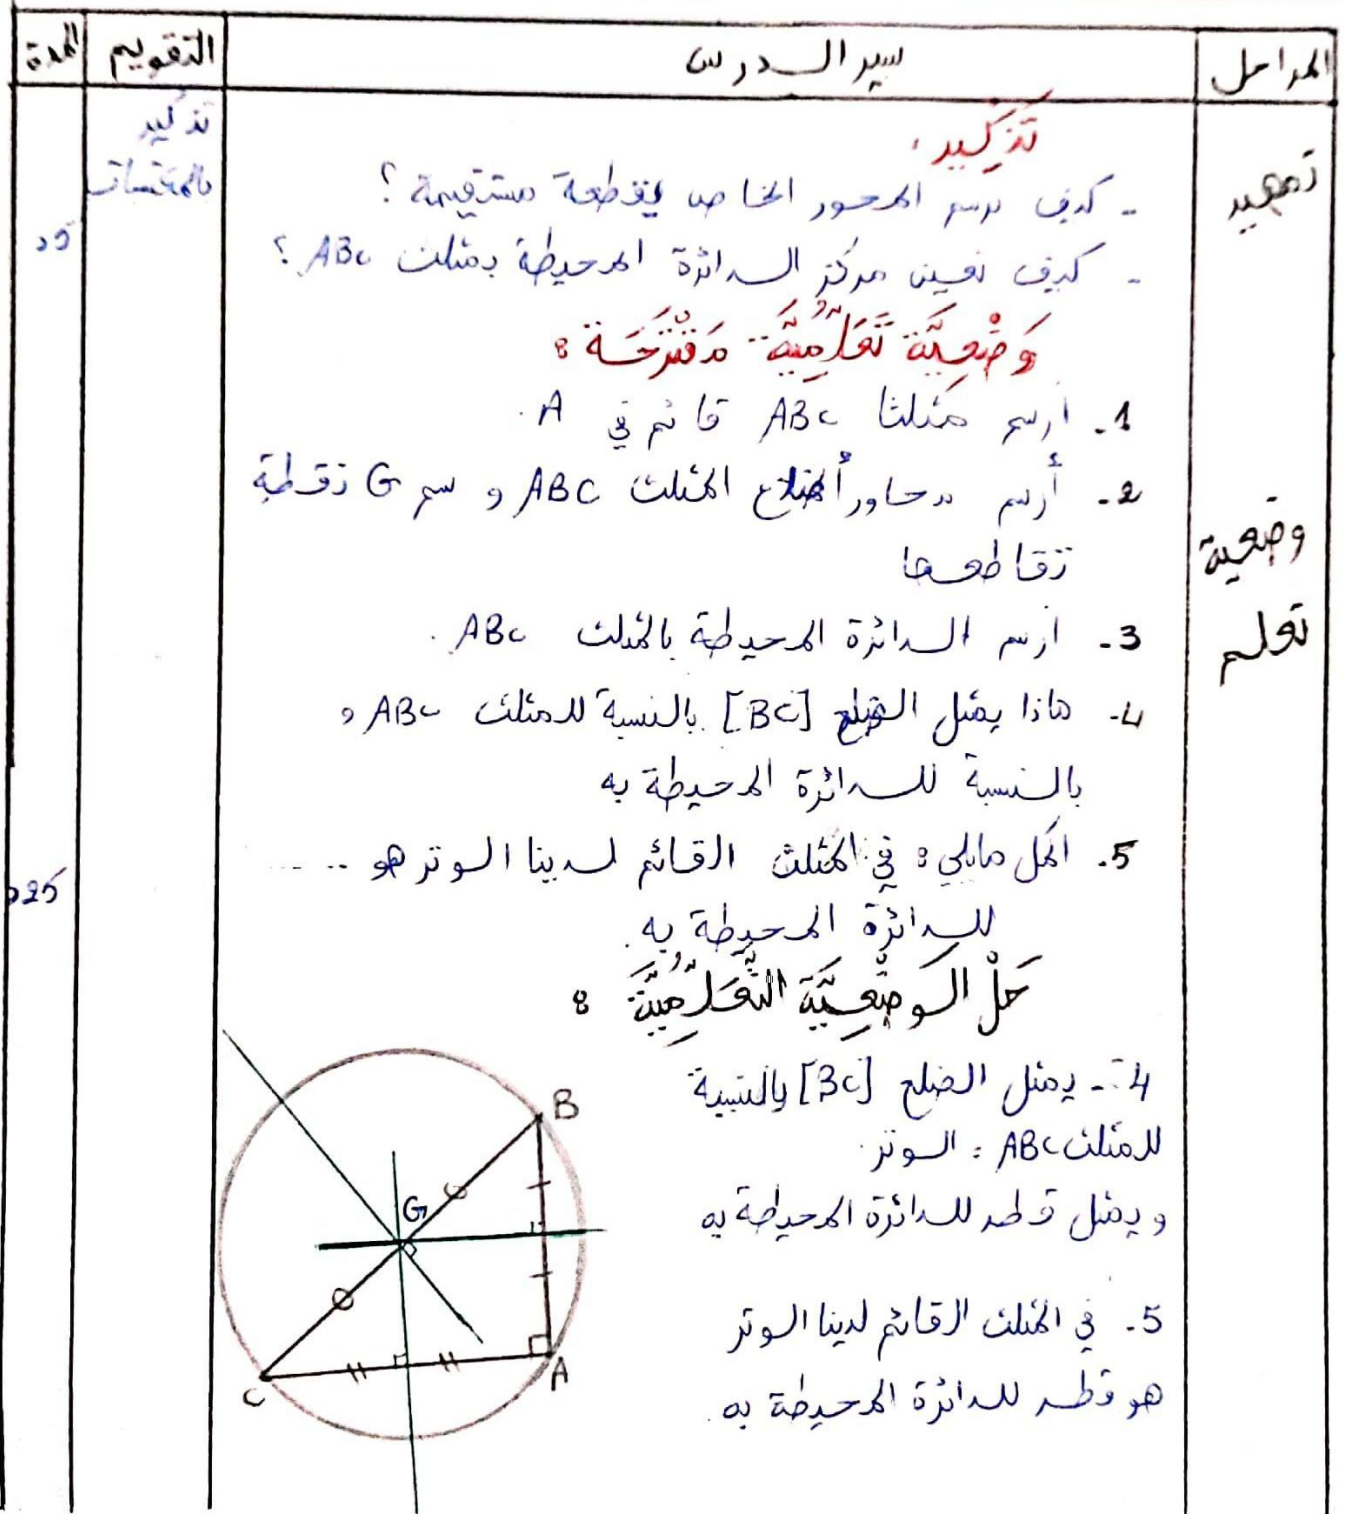 المراحل
سير الدرس
التقويم
المدة
تمهيد
تذكير:
- كيف نرسم المحور الخاص بقطعة مستقيمة؟
- كيف نعين مركز الدائرة المحيطة بمثلث ABC؟
تذكير
بالمكتسبات
د5
وضعية
تعلم
وَضْعِيَّة تَعَلُّمِيَّة مقْتَرَحَة:
1- ارسم مثلثا ABC قائم في A.
2- أرسم محاور أضلاع المثلث ABC و سم G نقطة
تقاطعها
3- ارسم الدائرة المحيطة بالمثلث ABC.
4- ماذا يمثل الضلع [BC] بالنسبة للمثلث ABC و
بالنسبة للدائرة المحيطة به
5- اكمل مايلي: في المثلث القائم لدينا الوتر هو .....
للدائرة المحيطة به.
د25
حَلْ الوضْعِيَّة التَّعَلُّمِيَّة:
4- يمثل الضلع [BC] بالنسبة
للمثلث ABC: الوتر.
و يمثل قطر للدائرة المحيطة به
5- في المثلث القائم لدينا الوتر
هو قطر للدائرة المحيطة به.
B
G
A
C